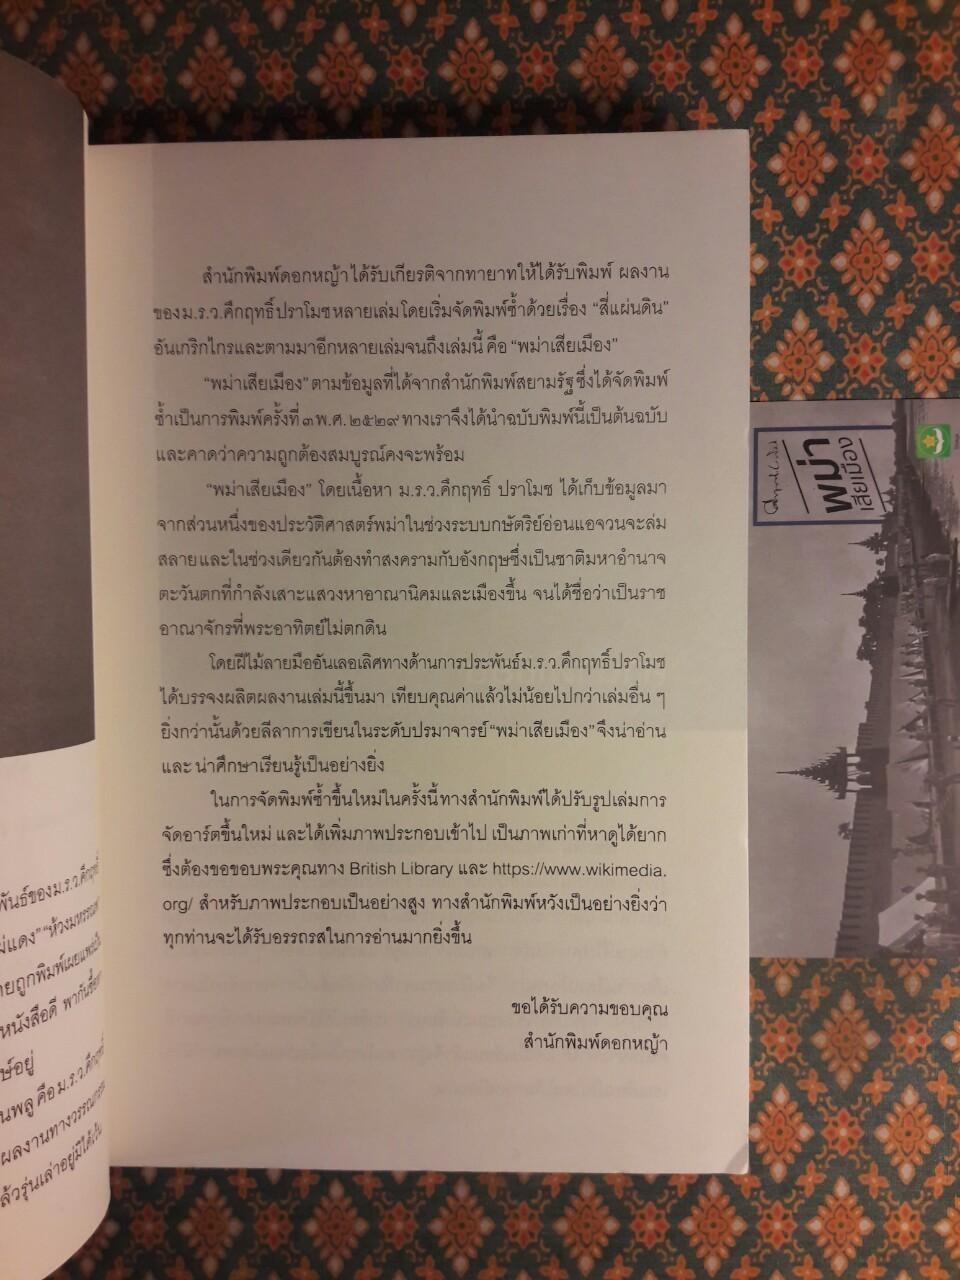 สำนักพิมพ์ดอกหญ้าได้รับเกียรติจากทายาทให้ได้รับพิมพ์ ผลงาน
ของม.ร.ว.คึกฤทธิ์ ปราโมชหลายเล่มโดยเริ่มจัดพิมพ์ซ้ำด้วยเรื่อง “สี่แผ่นดิน”
อันเกริกไกรและตามมาอีกหลายเล่มจนถึงเล่มนี้ คือ “พม่าเสียเมือง”
“พม่าเสียเมือง” ตามข้อมูลที่ได้จากสำนักพิมพ์สยามรัฐ ซึ่งได้จัดพิมพ์
ซ้ำเป็นการพิมพ์ครั้งที่ ๓ พ.ศ. ๒๕๒๙ ทางเราจึงได้นำฉบับพิมพ์นี้เป็นต้นฉบับ
และคาดว่าความถูกต้องสมบูรณ์คงจะพร้อม
“พม่าเสียเมือง” โดยเนื้อหา ม.ร.ว.คึกฤทธิ์ ปราโมช ได้เก็บข้อมูลมา
จากส่วนหนึ่งของประวัติศาสตร์พม่าในช่วงระบบกษัตริย์อ่อนแอจวนจะล่ม
สลาย และในช่วงเดียวกันต้องทำสงครามกับอังกฤษซึ่งเป็นชาติมหาอำนาจ
ตะวันตกที่กำลังเสาะแสวงหาอาณานิคมและเมืองขึ้น จนได้ชื่อว่าเป็นราช
อาณาจักรที่พระอาทิตย์ไม่ตกดิน
โดยฝีไม้ลายมืออันเลอเลิศทางด้านการประพันธ์ม.ร.ว.คึกฤทธิ์ ปราโมช
ได้บรรจงผลิตผลงานเล่มนี้ขึ้นมา เทียบคุณค่าแล้วไม่น้อยไปกว่าเล่มอื่น ๆ
ยิ่งกว่านั้นด้วยลีลาการเขียนในระดับปรมาจารย์ “พม่าเสียเมือง” จึงน่าอ่าน
และ น่าศึกษาเรียนรู้เป็นอย่างยิ่ง
ในการจัดพิมพ์ซ้ำขึ้นใหม่ในครั้งนี้ ทางสำนักพิมพ์ได้ปรับรูปเล่มการ
จัดอาร์ตขึ้นใหม่ และได้เพิ่มภาพประกอบเข้าไป เป็นภาพเก่าที่หาดูได้ยาก
ซึ่งต้องขอขอบพระคุณทาง British Library และ https://www.wikimedia.
org/ สำหรับภาพประกอบเป็นอย่างสูง ทางสำนักพิมพ์หวังเป็นอย่างยิ่งว่า
ทุกท่านจะได้รับอรรถรสในการอ่านมากยิ่งขึ้น
ขอได้รับความขอบคุณ
สำนักพิมพ์ดอกหญ้า
พันธ์ของม.ร.ว.คึกฤทธิ์
ถูกพิมพ์เผยแพร่
หนังสือดี พากันซื้อ
นพลู คือ ม.ร.ว.คึกฤทธิ์
ผลงานทางวรรณกรรม
ล้วรุ่นเล่าอยู่มิได้เว้น
พม่า
เสียเมือง